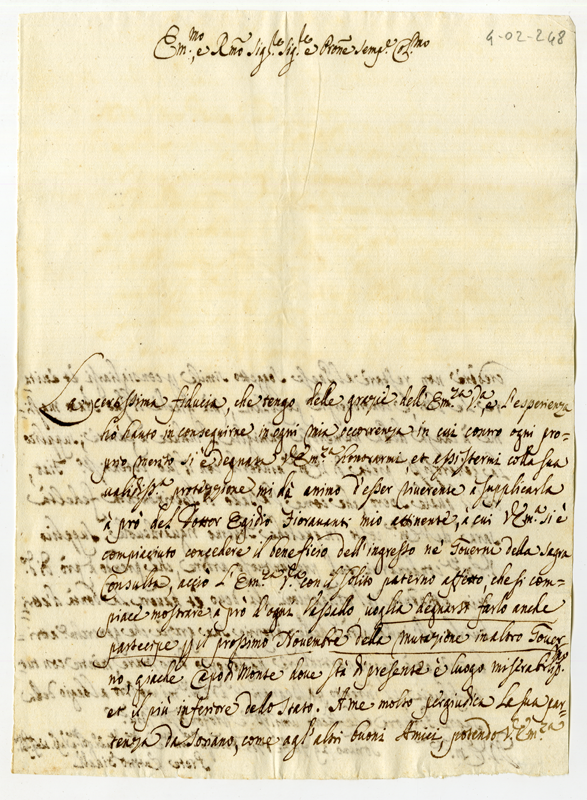 4-02-248
Em.mo, e R.mo Sig.re Sig.re e Prone semp.e Col.mo
La certissima fiducia, che tengo delle grazie dell'Em.za V.a e l'esperienza
hò hauto in conseguirne in ogni mia occorrenza in cui contro ogni pro=
prio merito si è degnata V. Em.za honorarmi et assistermi colla sua
validiss.a protezzione, mi dà animo d'esser riverente à supplicarla
à prò del Dottor Egidio Fioravanti mio attinente, a cui V. Em.za si è
compiaciuto concedere il beneficio dell'ingresso ne' Governi della Sagra
Consulta, acciò l'Em.za V.a con il solito paterno affetto che si com=
piace mostrare à prò d'ogni Vassallo voglia degnarsi farlo anche
partecipe p il prossimo Novembre della mutazione in altro Gover=
no, giache Capodimonte dove stà di presente è luogo miserabiliss.mo
et il più inferiore dello Stato. À me molto pregiudica la sua par=
tenza da Soriano, come agl'altri buoni Amici, potendo V. Em.za